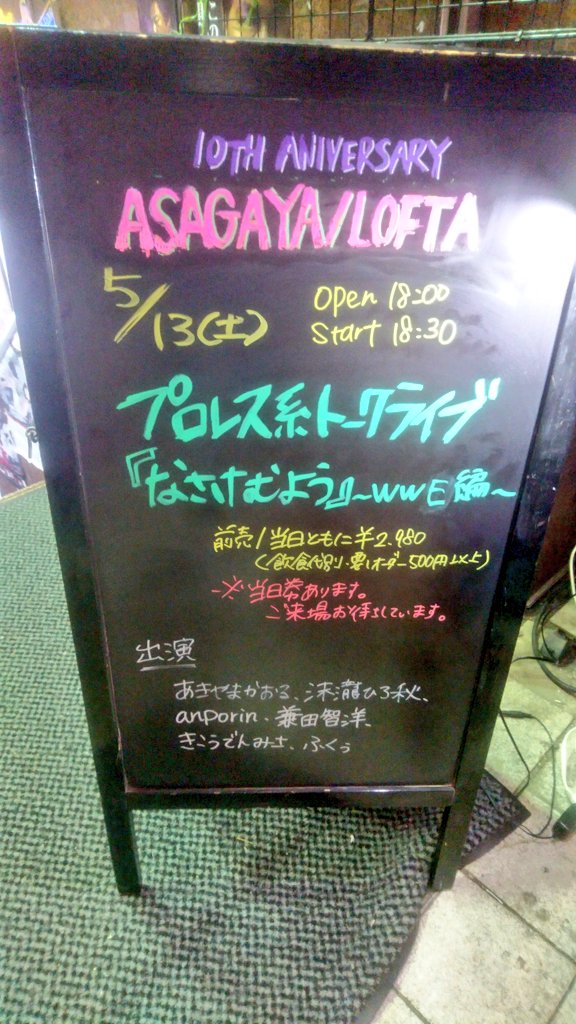 10TH ANIVERSARY
ASAGAYA/LOFTA
5/13(土)
Open 18:00
Start 18:30
プロレス系トークライブ
『なさけむよう』〜WWE編〜
前売/当日ともに¥2,980
(飲食代別・要オーダー500円以上)
※当日券あります。
ご来場お待ちしています。
出演
あきやまかおる、清瀧ひろ秋、
anporin・兼田智洋、
きこうでんみさ、ふくぅ